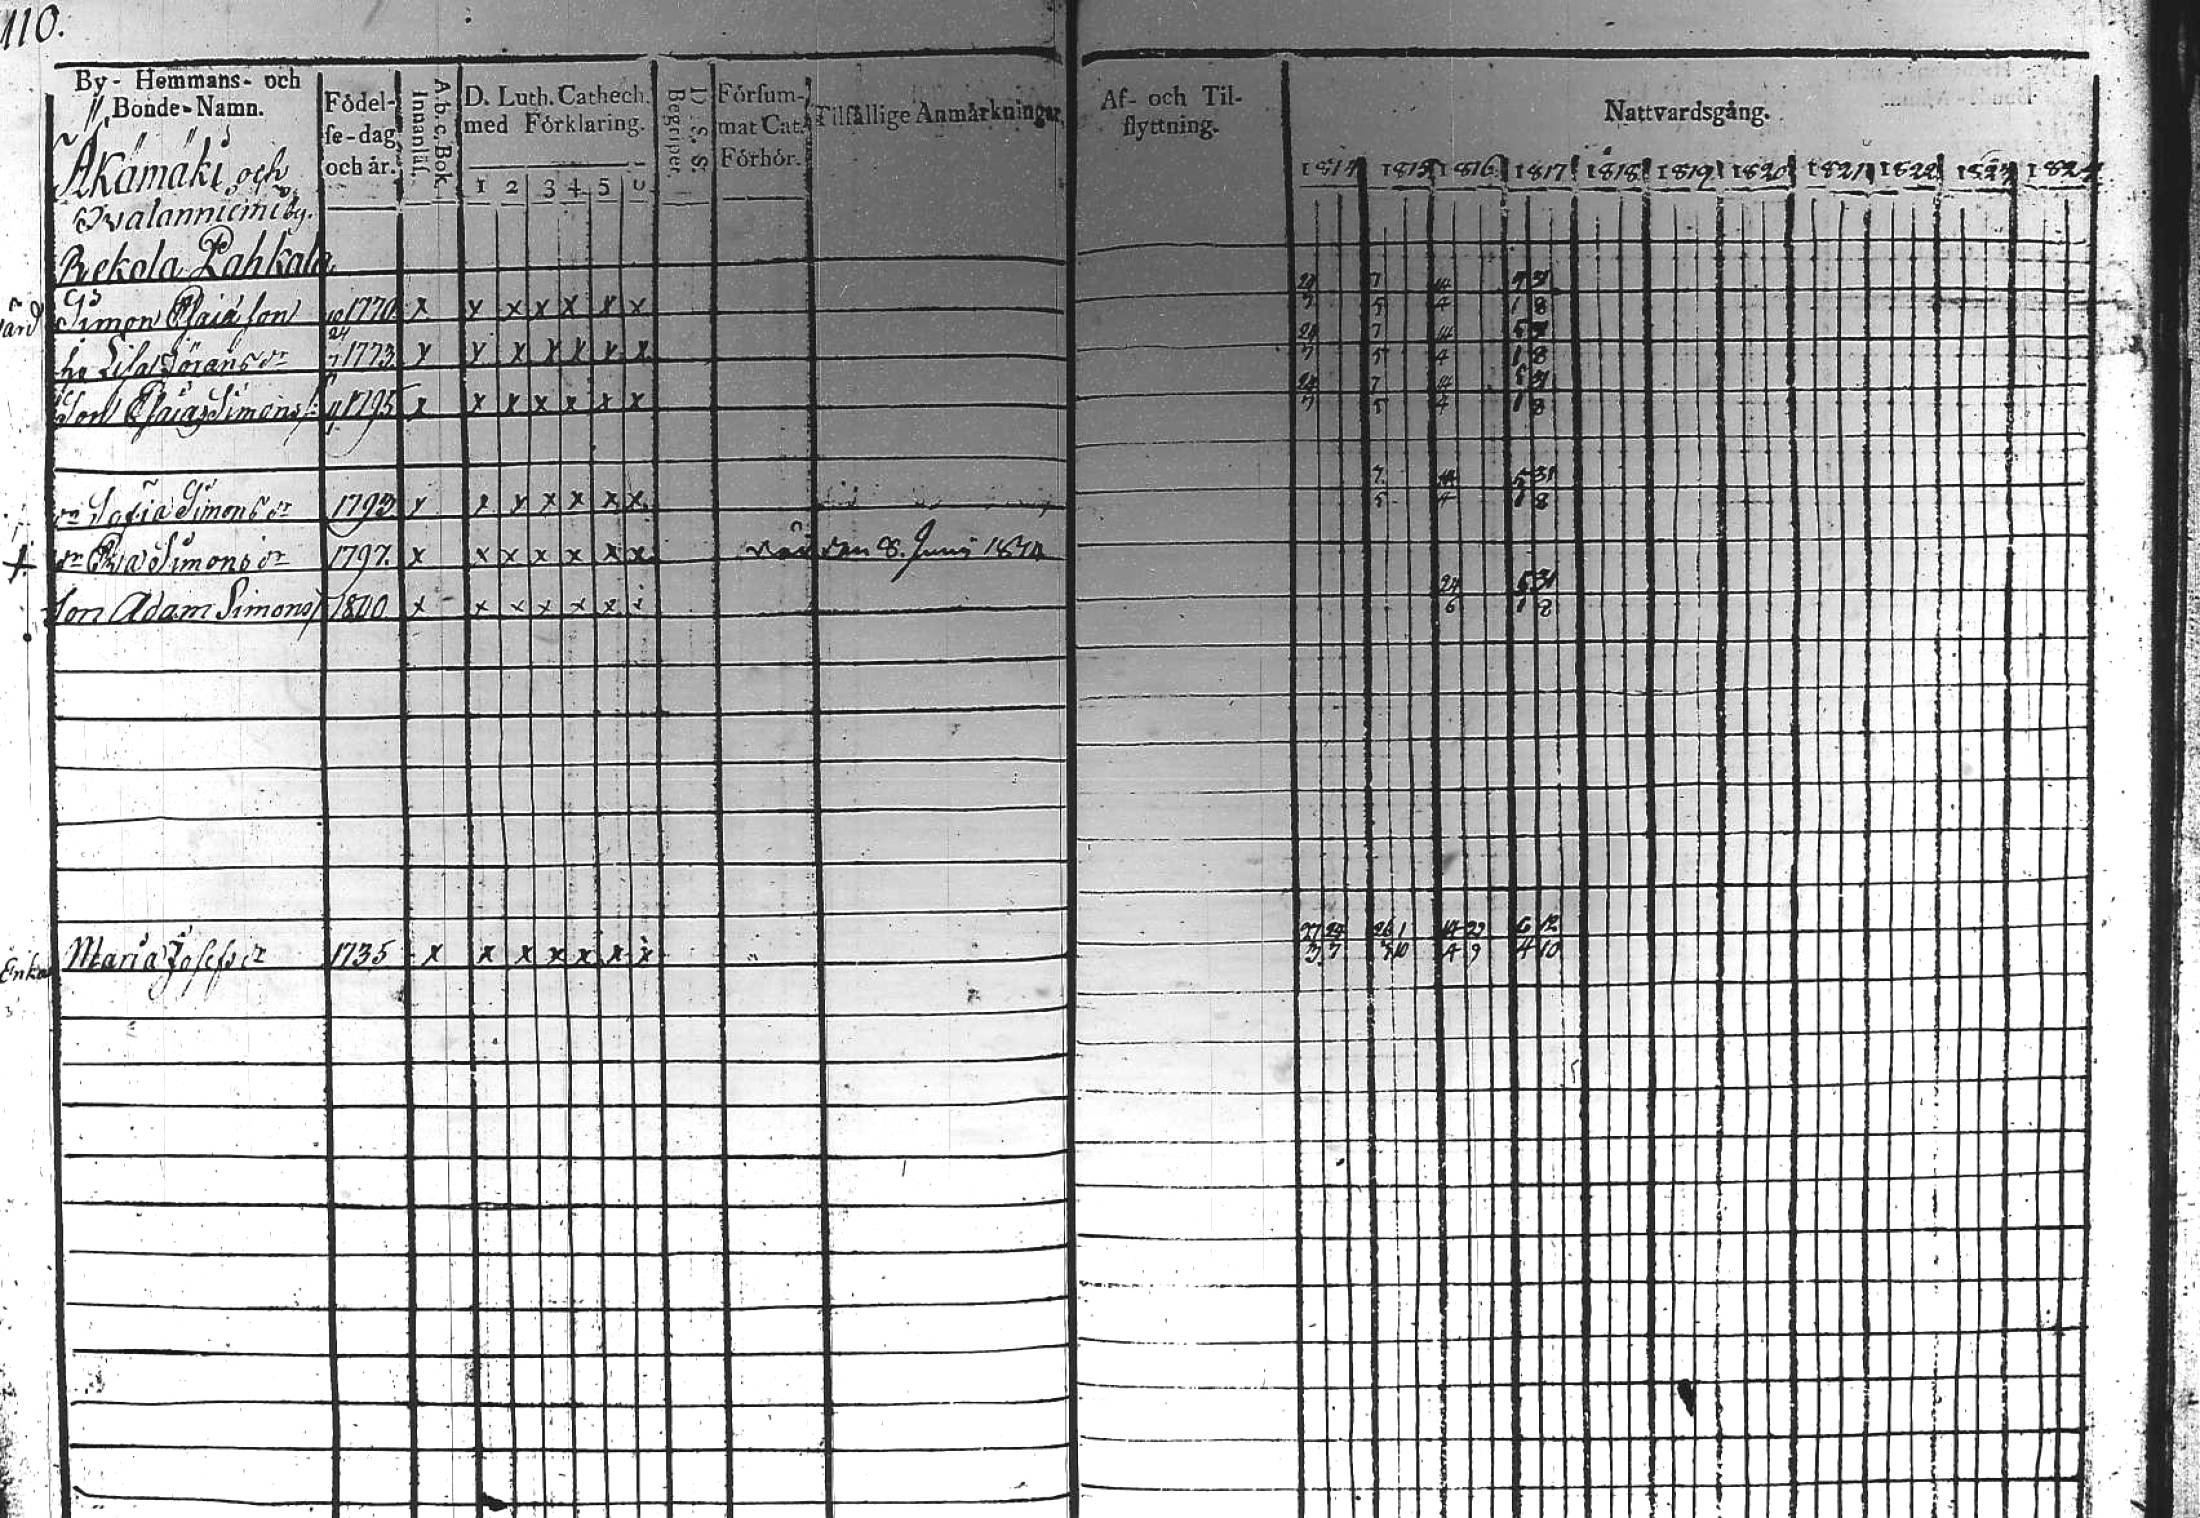 110.
By - Hemmans- och Bonde-Namn.
Födelse-dag och år.
A.b.c. Bok. Innanläs.
D. Luth. Cathech. med Förklaring.
1 2 3 4 5 6
D. S. S. Begriper.
Försummat Cat. Förhör.
Tilfällige Anmärkningar.
Af- och Tilflyttning.
Nattvardsgång.
1814 1815 1816 1817 1818 1819 1820 1821 1822 1823 1824
Äkämäki och
Valanniemi by.
Rekola Pahkala
Simon Esaiæ son 1770 x x x x x x x
24 7 14 5 31
7 5 4 1 8
hu Lisa Jörans dr 1773 x x x x x x x
24 7 14 5 31
7 5 4 1 8
Son Esaias Simons 1795 x x x x x x x
24 7 14 5 31
7 5 4 1 8
dr Sofia Simons dr 1793 x x x x x x x
7 14 5 31
5 4 1 8
dr Eva Simons dr 1797. x x x x x x x den 8. Junii 1814
Son Adam Simons 1800 x x x x x x x
24 5 31
6 1 8
Enka Maria Josefs dr 1735 x x x x x x x
27 24 26 1 14 29 6 12
3 7 3 10 4 9 4 10